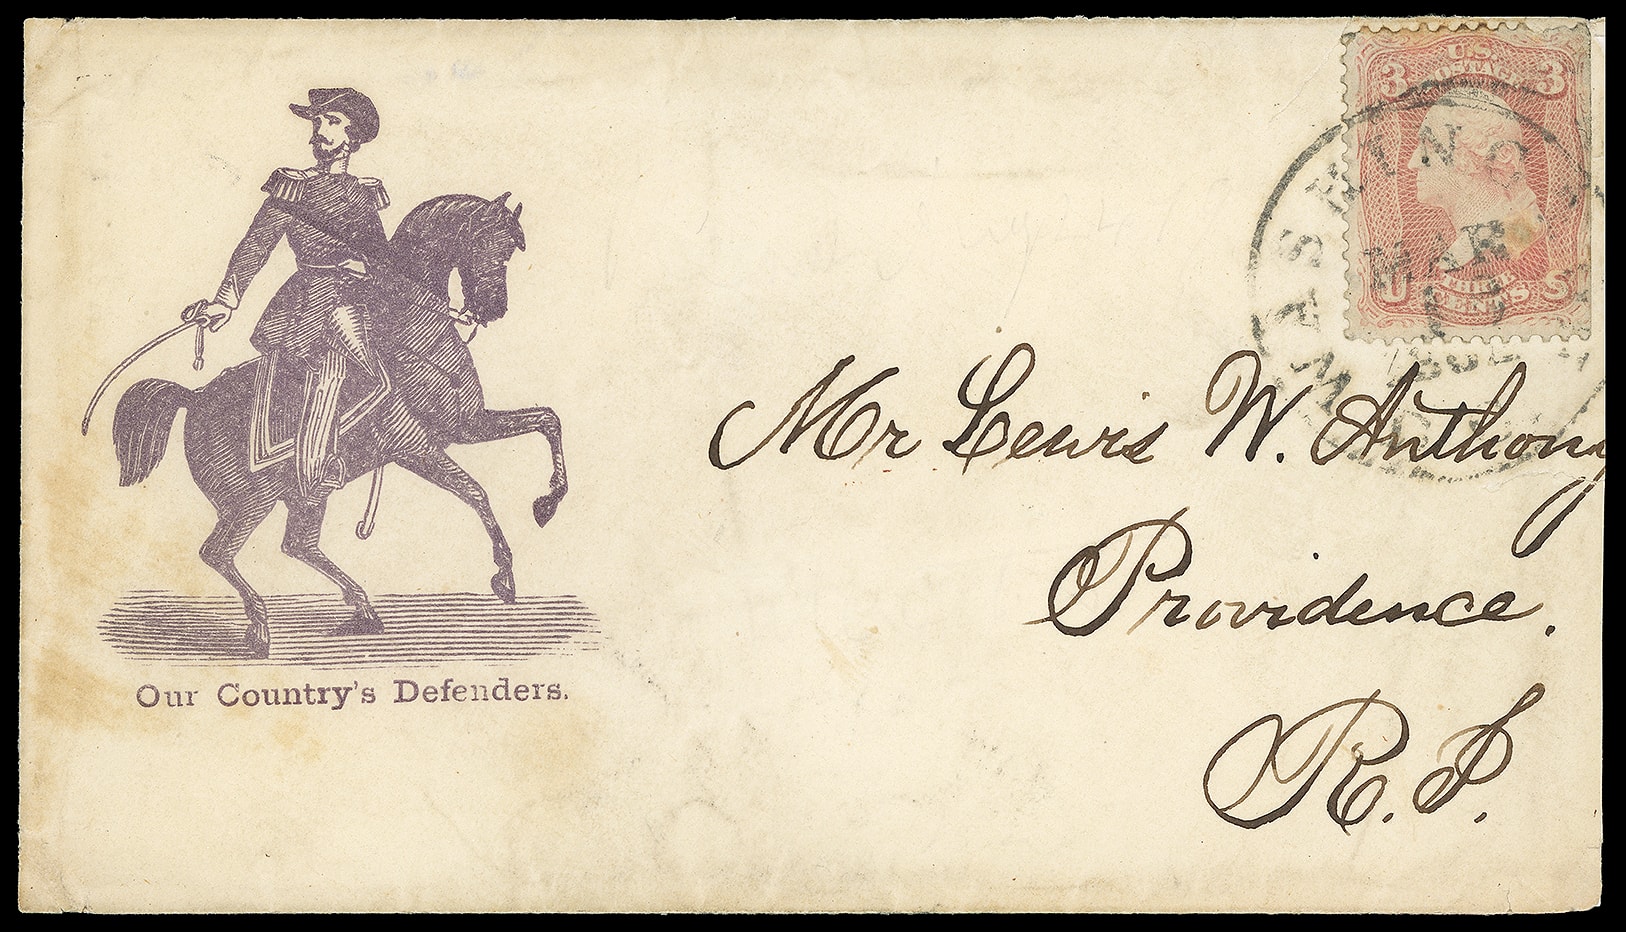 U.S. POSTAGE
3 3
WASHING
MAR
1862
U S
THREE CENTS
Mr Lewis W. Anthony
Providence.
R.I.
Our Country's Defenders.